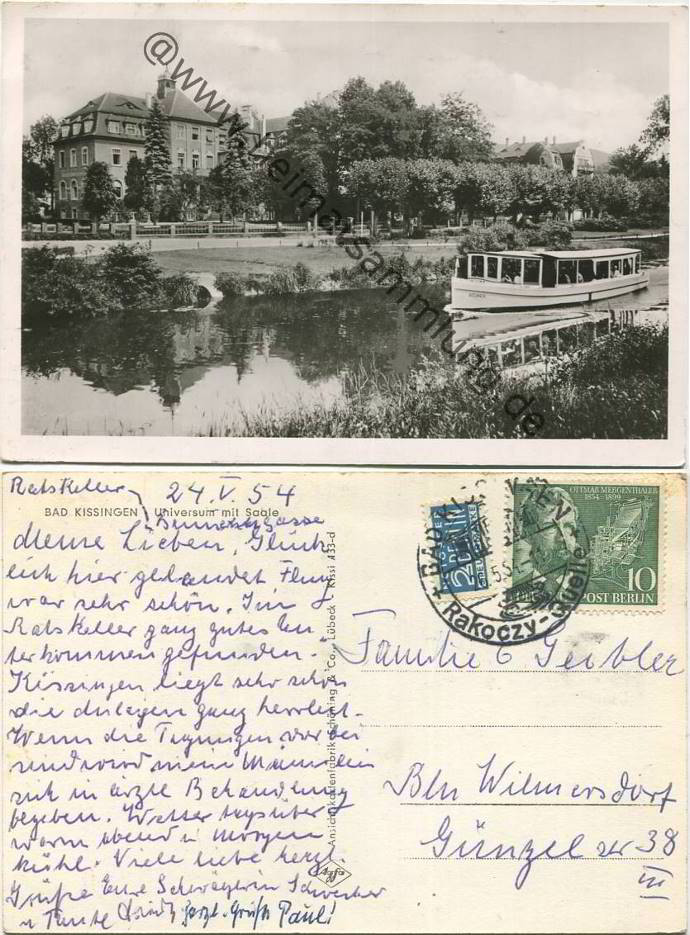 @www.heimatsammlung.de
Ratskeller, 24. V. 54
BAD KISSINGEN Universum mit Saale
Meine Lieben, Glück-
lich hier gelandet Flug
war sehr schön. Im
Ratskeller ganz gutes Un-
terkommen gefunden.
Kissingen liegt sehr schön
die Anlagen ganz herrlich.
Wenn die Tagungen vorbei
sind wird mein Männlein
sich in ärztl Behandlung
begeben. Wetter tagsüber
warm abend u morgen
kühl. Viele liebe herzl.
Grüße Eure Schwägerin Schwester
u Tante herzl. Grüße Paul!
Ansichtskartenfabrik Schöning & Co., Lübeck
Kissi 433-d
Agfa
NOTOPFER
2 BERLIN
STEUERMARKE
BAD KISSINGEN
Rakoczy-Quelle
OTTMAR MERGENTHALER
1854-1899
10
DEUTSCHE POST BERLIN
Familie Geibler
Bln Wilmersdorf
Günzelstr 38
III